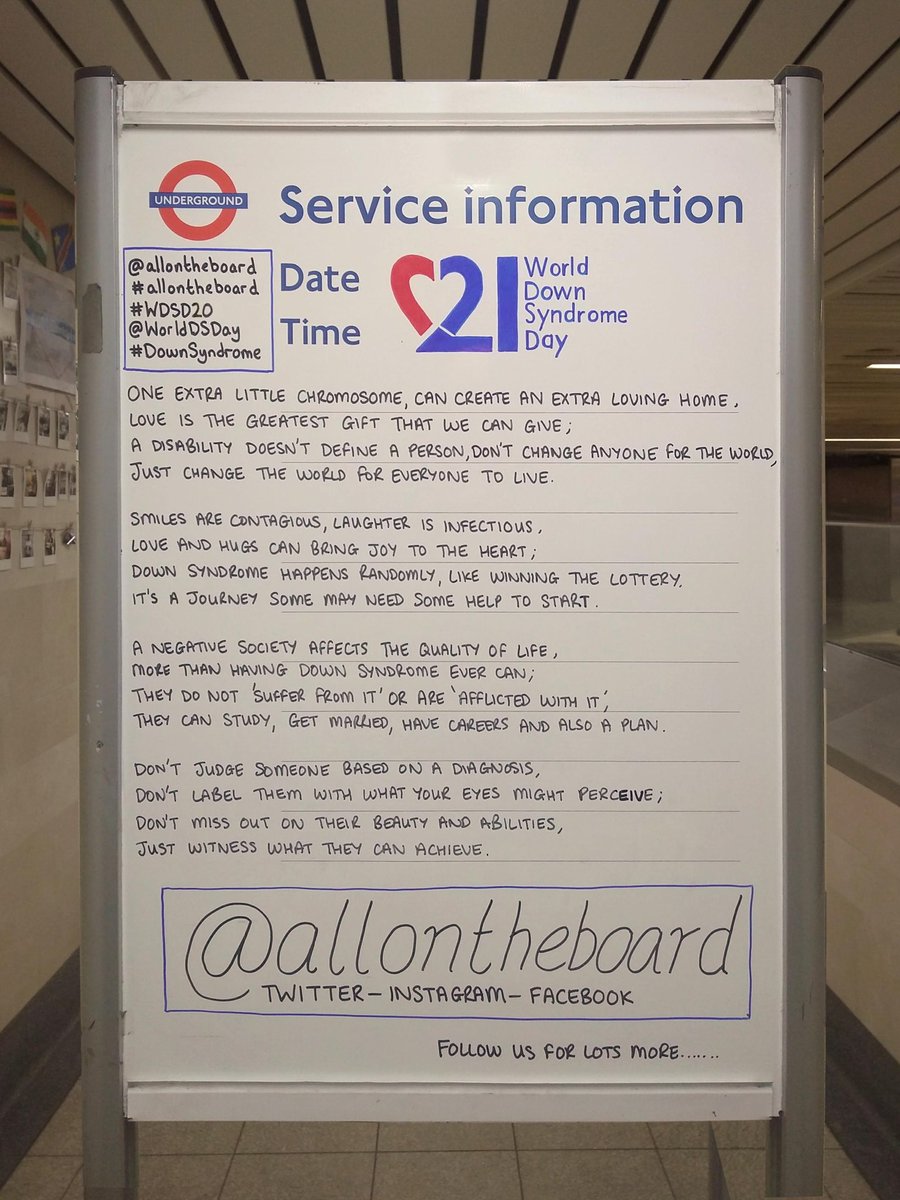 UNDERGROUND
Service information
@allontheboard
#allontheboard
#WDSD20
@WorldDSDay
#DownSyndrome
Date
Time
21
World
Down
Syndrome
Day
ONE EXTRA LITTLE CHROMOSOME, CAN CREATE AN EXTRA LOVING HOME.
LOVE IS THE GREATEST GIFT THAT WE CAN GIVE;
A DISABILITY DOESN'T DEFINE A PERSON, DON'T CHANGE ANYONE FOR THE WORLD,
JUST CHANGE THE WORLD FOR EVERYONE TO LIVE.
SMILES ARE CONTAGIOUS, LAUGHTER IS INFECTIOUS,
LOVE AND HUGS CAN BRING JOY TO THE HEART;
DOWN SYNDROME HAPPENS RANDOMLY, LIKE WINNING THE LOTTERY.
IT'S A JOURNEY SOME MAY NEED SOME HELP TO START.
A NEGATIVE SOCIETY AFFECTS THE QUALITY OF LIFE,
MORE THAN HAVING DOWN SYNDROME EVER CAN;
THEY DO NOT 'SUFFER FROM IT' OR ARE 'AFFLICTED WITH IT',
THEY CAN STUDY, GET MARRIED, HAVE CAREERS AND ALSO A PLAN.
DON'T JUDGE SOMEONE BASED ON A DIAGNOSIS,
DON'T LABEL THEM WITH WHAT YOUR EYES MIGHT PERCEIVE;
DON'T MISS OUT ON THEIR BEAUTY AND ABILITIES,
JUST WITNESS WHAT THEY CAN ACHIEVE.
@allontheboard
TWITTER - INSTAGRAM - FACEBOOK
FOLLOW US FOR LOTS MORE.......